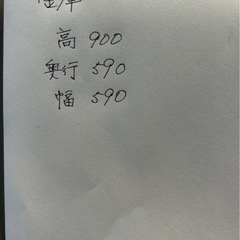 金庫
高 900
奥行 590
幅 590